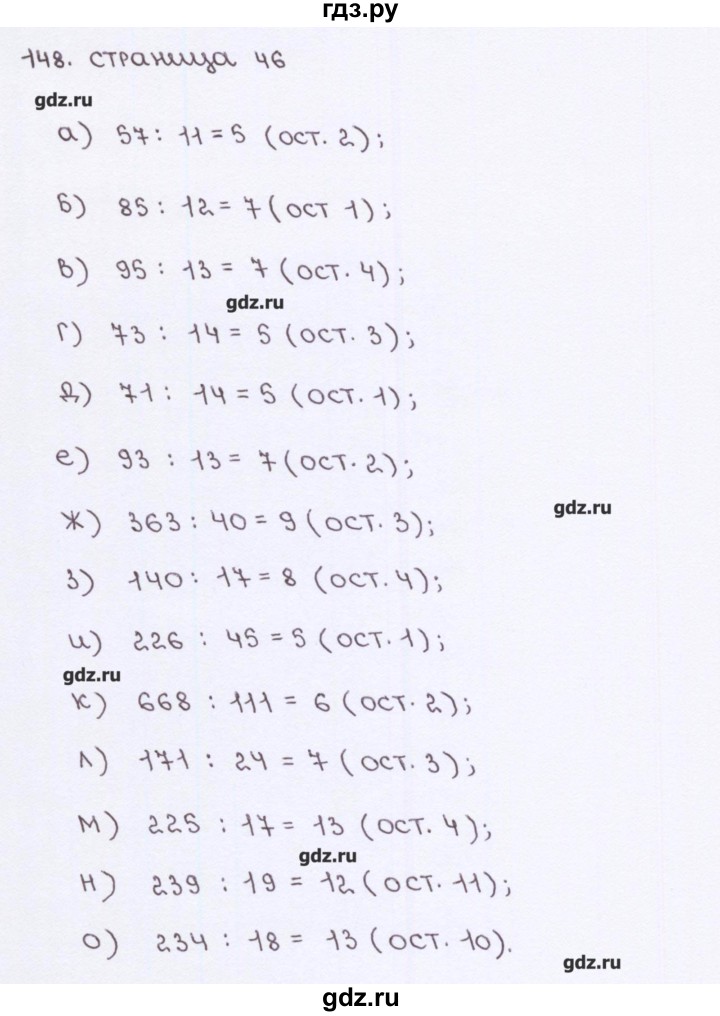 гдз.ру
148. страница 46
gdz.ru
а) 57 : 11 = 5 (ост. 2);
б) 85 : 12 = 7 (ост 1);
в) 95 : 13 = 7 (ост. 4);
gdz.ru
г) 73 : 14 = 5 (ост. 3);
д) 71 : 14 = 5 (ост. 1);
е) 93 : 13 = 7 (ост. 2);
gdz.ru
ж) 363 : 40 = 9 (ост. 3);
з) 140 : 17 = 8 (ост. 4);
и) 226 : 45 = 5 (ост. 1);
gdz.ru
к) 668 : 111 = 6 (ост. 2);
л) 171 : 24 = 7 (ост. 3);
м) 225 : 17 = 13 (ост. 4);
gdz.ru
н) 239 : 19 = 12 (ост. 11);
о) 234 : 18 = 13 (ост. 10).
gdz.ru
gdz.ru